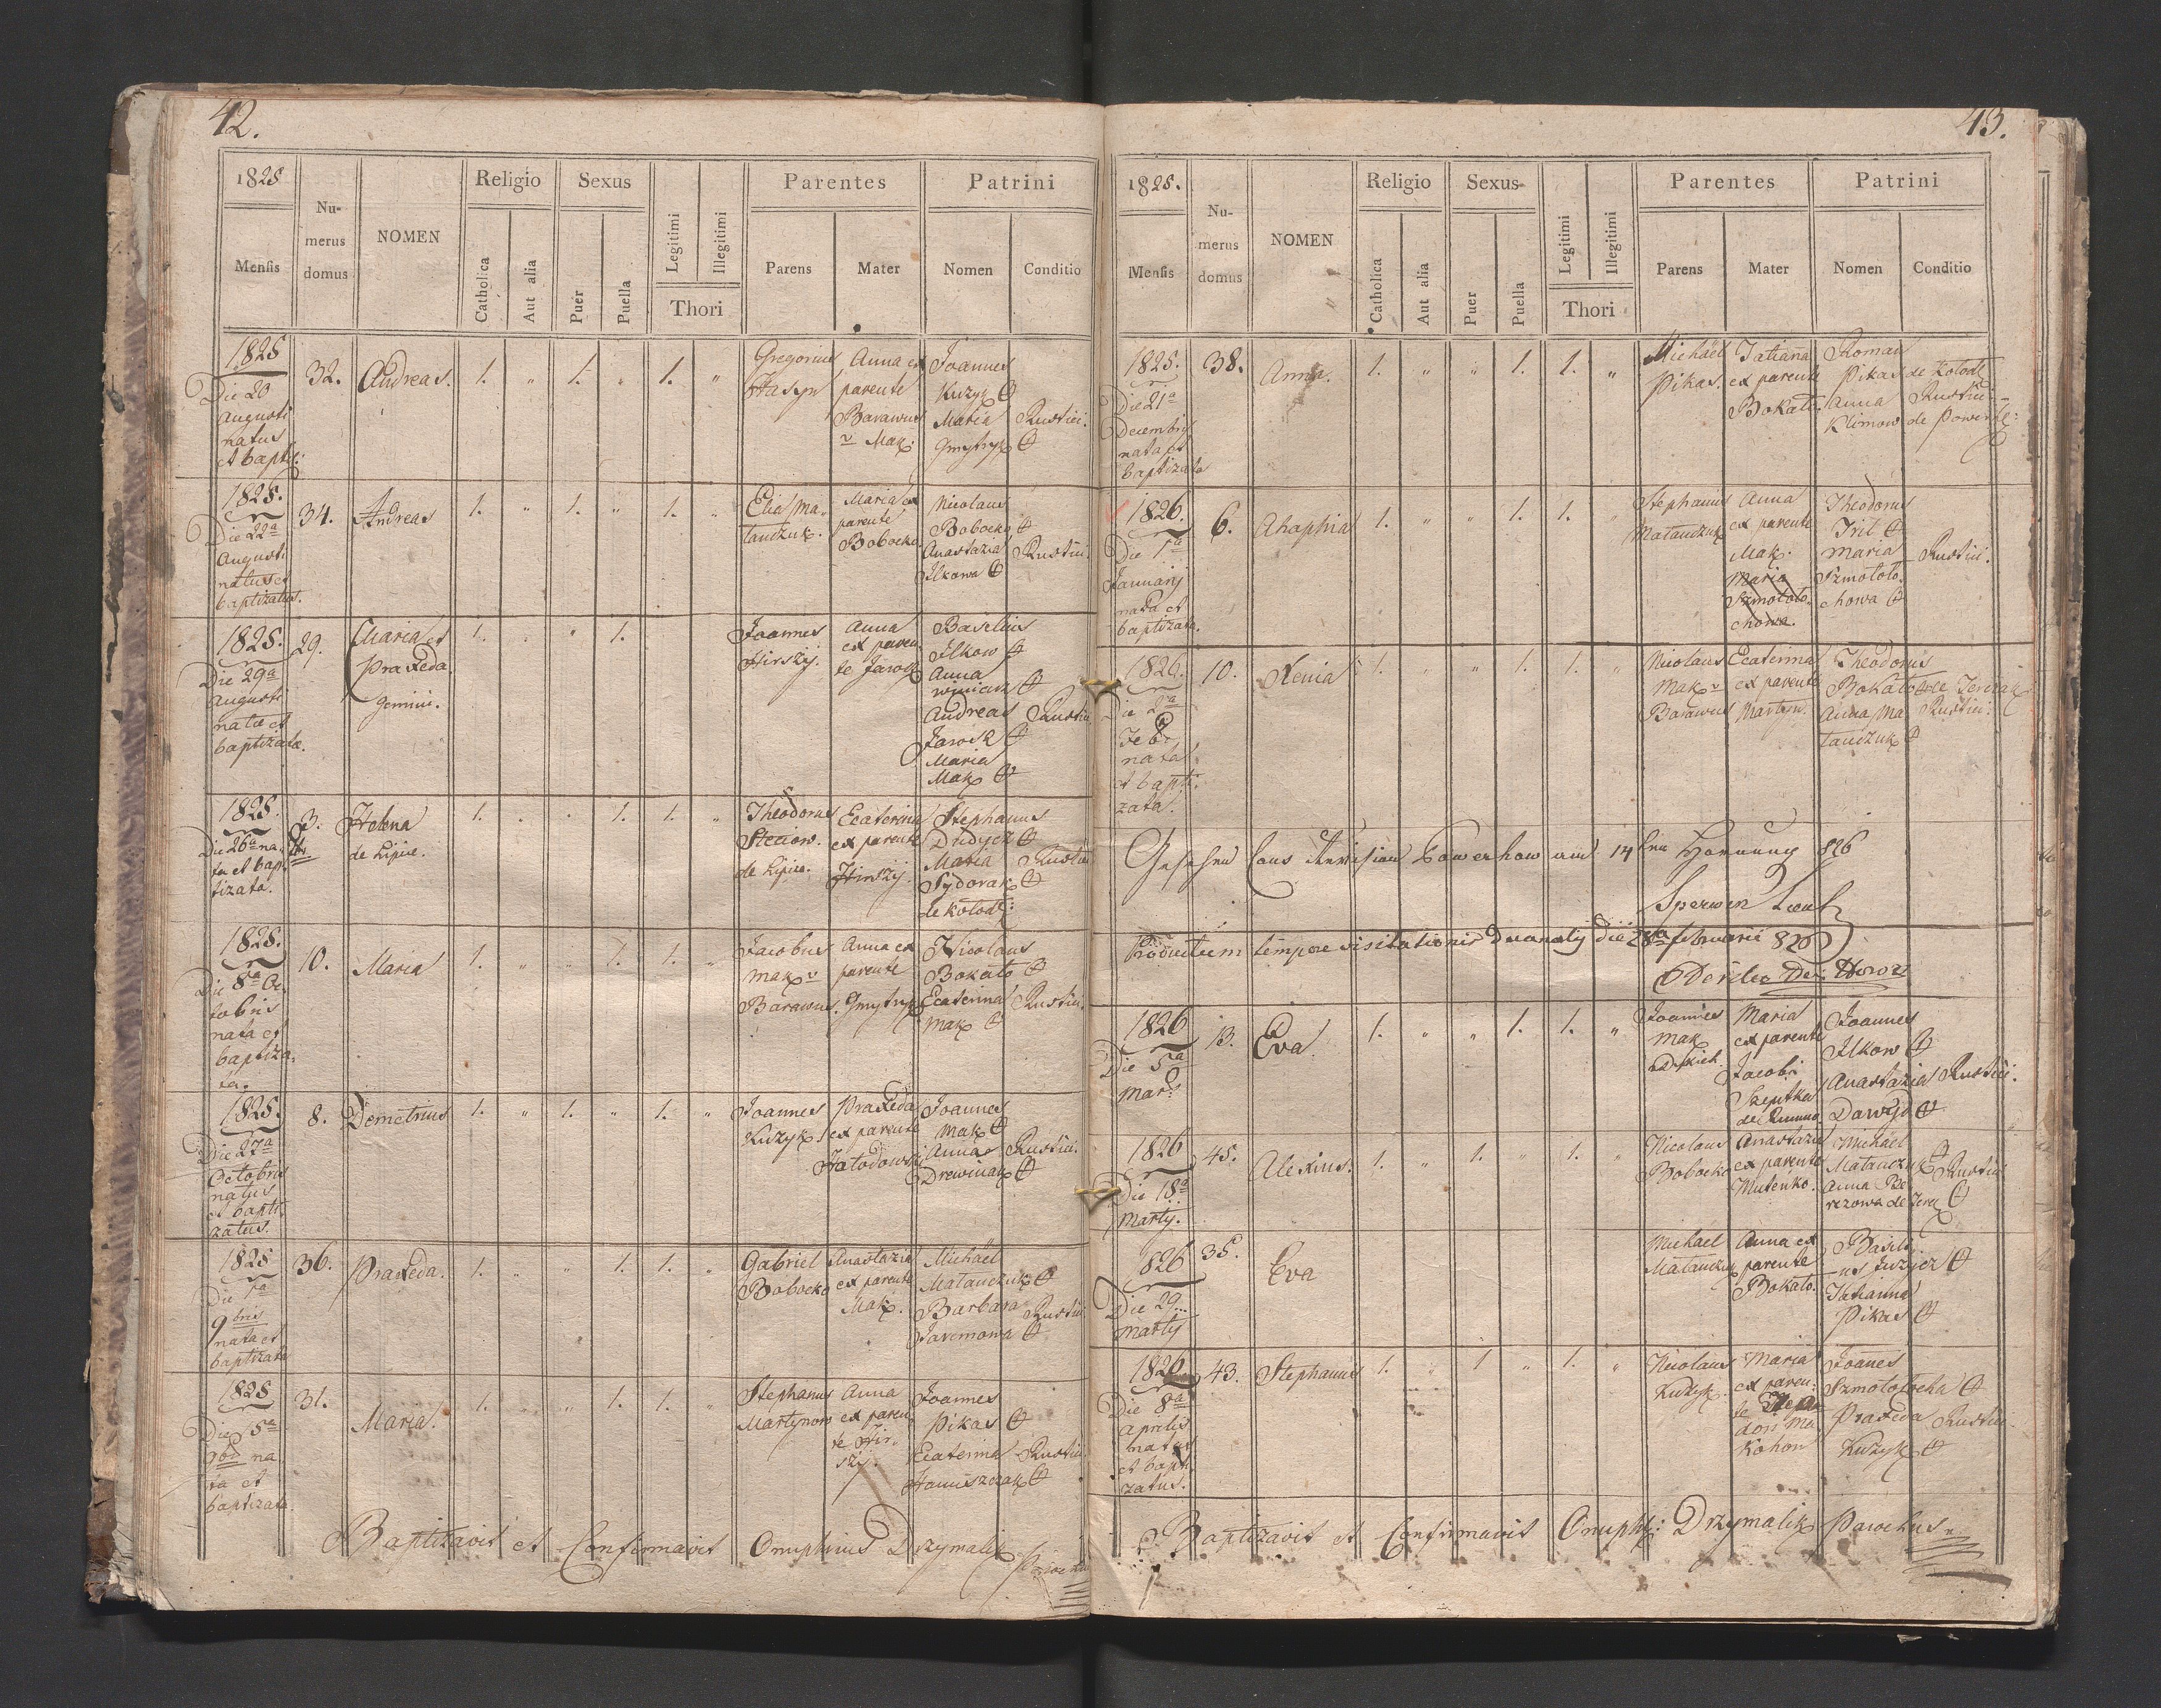 42.
1825
Mensis
Nu-
merus
domus
NOMEN
Religio
Catholica
Aut alia
Sexus
Puer
Puella
Legitimi
Illegitimi
Thori
Parentes
Parens
Mater
Patrini
Nomen
Conditio
1825
Die 20
Augusti
natus
et baptiz:
32.
Andreas.
1.
"
1.
"
1.
"
Gregorius
Anna ex
parente
Barawus
v Mak:
Joannes
Kuzyk
Maria
Gmytryk
Rustici.
1825.
Die 22a
Augusti
natus et
baptizatus.
34.
Andreas
1.
"
1.
"
1.
"
Elia Ma„
tauczuk.
Maria ex
parente
Bobocko
Nicolaus
Bobocko
Anastazia
Ilkowa
Rustici.
1825.
Die 29a
Augusti
natæ et
baptizatæ.
29.
Maria et
Praxeda.
gemini.
1.
"
1.
Joannes
Hirszij.
Anna
ex paren
te Jarosz
Basilius
Ilkow
Anna
Winiarz
Andreas
Jarosz
Maria
Mak
Rustici
1825.
Die 26a na„
ta et bap„
tizata.
3.
Helena
de Lipice.
1.
1.
1.
"
Theodorus
Steciow.
de Lipice.
Ecaterina
ex parente
Hirszij.
Stephanus
Dudycz
Maria
Sydorak
de Kolodr:
Rustici
1825.
Die 8a Oc„
tobris
nata et
baptiza„
ta.
10.
Maria
1.
"
"
1.
1.
"
Jacobus
Mak v
Barawus.
Anna ex
parente
Gmytryk
Nicolaus
Bokalo
Ecaterina
Mak
Rustici.
1825.
Die 27a
Octobris
natus
et bapti„
zatus.
8.
Demetrius
1.
"
1.
"
1.
"
Joannes
Kuzyk.
Praxeda
ex parente
Joannes
Mak
Anna
Drewniak
Rustici.
1825
Die 7a
9bris
nata et
baptizata
36.
Praxeda.
1.
"
"
1.
1.
"
Gabriel
Bobocko
Anastazia
ex parente
Mak.
Michäel
Matauczuk
Barbara
Jaremowa
Rustici
1825
Die 5a
na
ta et
baptizata.
31.
Maria.
1.
"
"
1.
1.
"
Stephanus
Martynow
Anna
ex paren„
te Hir„
szij.
Joannes
Pikas
Ecaterina
Rustici.
Baptizavit et Confirmavit Onuphrius Drzymalik Parochus
43.
1825.
Mensis
Nu-
merus
domus
NOMEN
Religio
Catholica
Aut alia
Sexus
Puer
Puella
Legitimi
Illegitimi
Thori
Parentes
Parens
Mater
Patrini
Nomen
Conditio
1825.
Die 21a
Decembris
nata et
baptizata
38.
Anna.
1.
"
"
1.
1.
"
Michäel
Pikas.
Tatianna
ex parente
Bokalo.
Roman
Pikas de Kolodr
Anna Rustici
Klimow de
1826.
Die 1a
Januarij
nata et
baptizata.
6.
Ahaphia
1.
"
"
1.
1.
"
Stephanus
Matauczuk
Anna
ex parente
Mak.
Maria
Szmoloto„
chowa.
Theodorus
Maria
Szmoloto„
chowa
Rustici.
1826.
Die 2a
Feb:
nata
et bapti„
zata.
10.
Xenia
1.
"
"
1.
1.
"
Nicolaus
Mak v
Barawus
Ecaterina
ex parente
Martyn.
Theodorus
Bokalo
Anna Ma
tauczuk
Rustici.
826
Productum tempore visitationis Decanalij die 28a februarii 826
1826
Die 5a
Mar:
13.
Eva.
1.
"
"
1.
1.
"
Joannes
Mak
Maria
ex parente
Jacobi
Joannes
Ilkow
Anastazia
Rustici.
1826
Die 18a
Martij.
45.
Alexius.
1.
"
1.
"
1.
"
Nicolaus
Bobocko
Anastazia
ex parente
Mutenko.
Michäel
Matauczuk
Anna
Rustici
826
Die 29
Martij
35.
Eva
Michael
Matauczuk
Anna ex
parente
Bokalo.
Basili„
us
Tatianna
Pikas
1826
Die 8a
Aprilis
natus
et bapti„
zatus.
43.
Stephanus
1.
"
1
"
1.
"
Nicolaus
Kuzyk.
Maria
ex paren„
te
Joannes
Praxeda
Kuzyk
Rustici
Baptizavit et Confirmavit Onuphr: Drzymalik Parochus